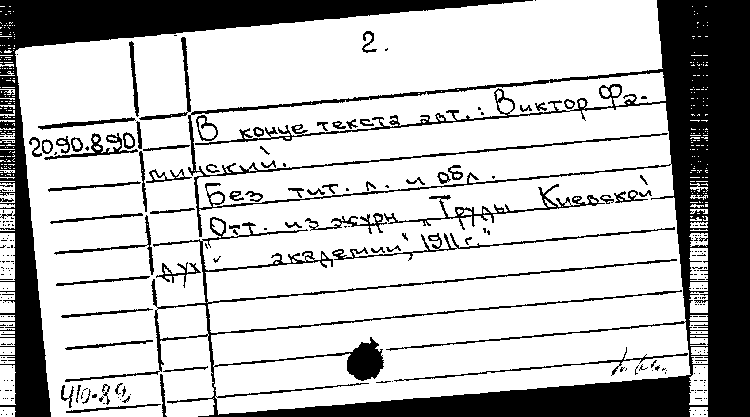 2.
20.90.8.90
В конце текста авт.: Виктор Фа-
минский.
Без тит. л. и обл.
"Отт. из журн „Труды Киевской
дух. академии", 1911 г."
410-89